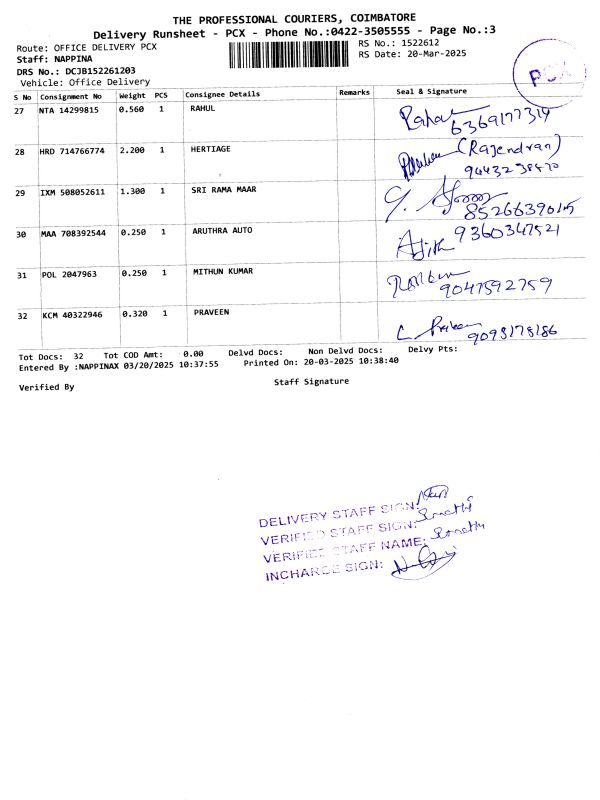 THE PROFESSIONAL COURIERS, COIMBATORE
Delivery Runsheet - PCX - Phone No.:0422-3505555 - Page No.:3
Route: OFFICE DELIVERY PCX
RS No.: 1522612
Staff: NAPPINA
RS Date: 20-Mar-2025
DRS No.: DCJB152261203
Vehicle: Office Delivery
PCX
S No Consignment No Weight PCS Consignee Details Remarks Seal & Signature
27 NTA 14299815 0.560 1 RAHUL
6369177314
28 HRD 714766774 2.200 1 HERTIAGE (Rajendran)
9443238470
29 IXM 508052611 1.300 1 SRI RAMA MAAR
8526639015
30 MAA 708392544 0.250 1 ARUTHRA AUTO Ajith 9360347521
31 POL 2047963 0.250 1 MITHUN KUMAR
9047592759
32 KCM 40322946 0.320 1 PRAVEEN
9098178186
Tot Docs: 32 Tot COD Amt: 0.00 Delvd Docs: Non Delvd Docs: Delvy Pts:
Entered By :NAPPINAX 03/20/2025 10:37:55 Printed On: 20-03-2025 10:38:40
Verified By Staff Signature
DELIVERY STAFF SIGN:
VERIFIED STAFF SIGN:
VERIFIED STAFF NAME:
INCHARGE SIGN: